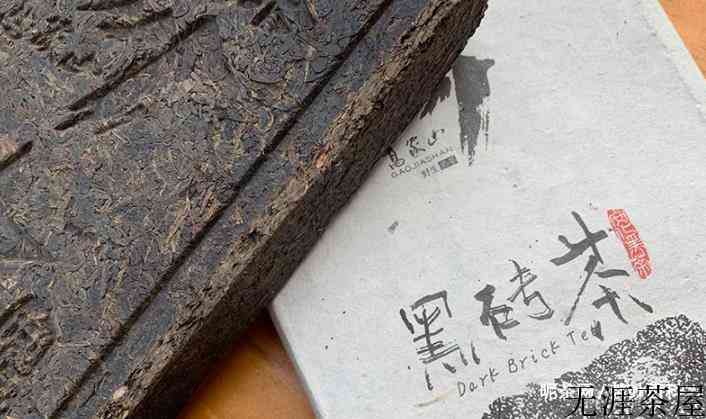 高家山
GAOJIASHAN
黑砖茶
Dark Brick Tea
无涯茶屋